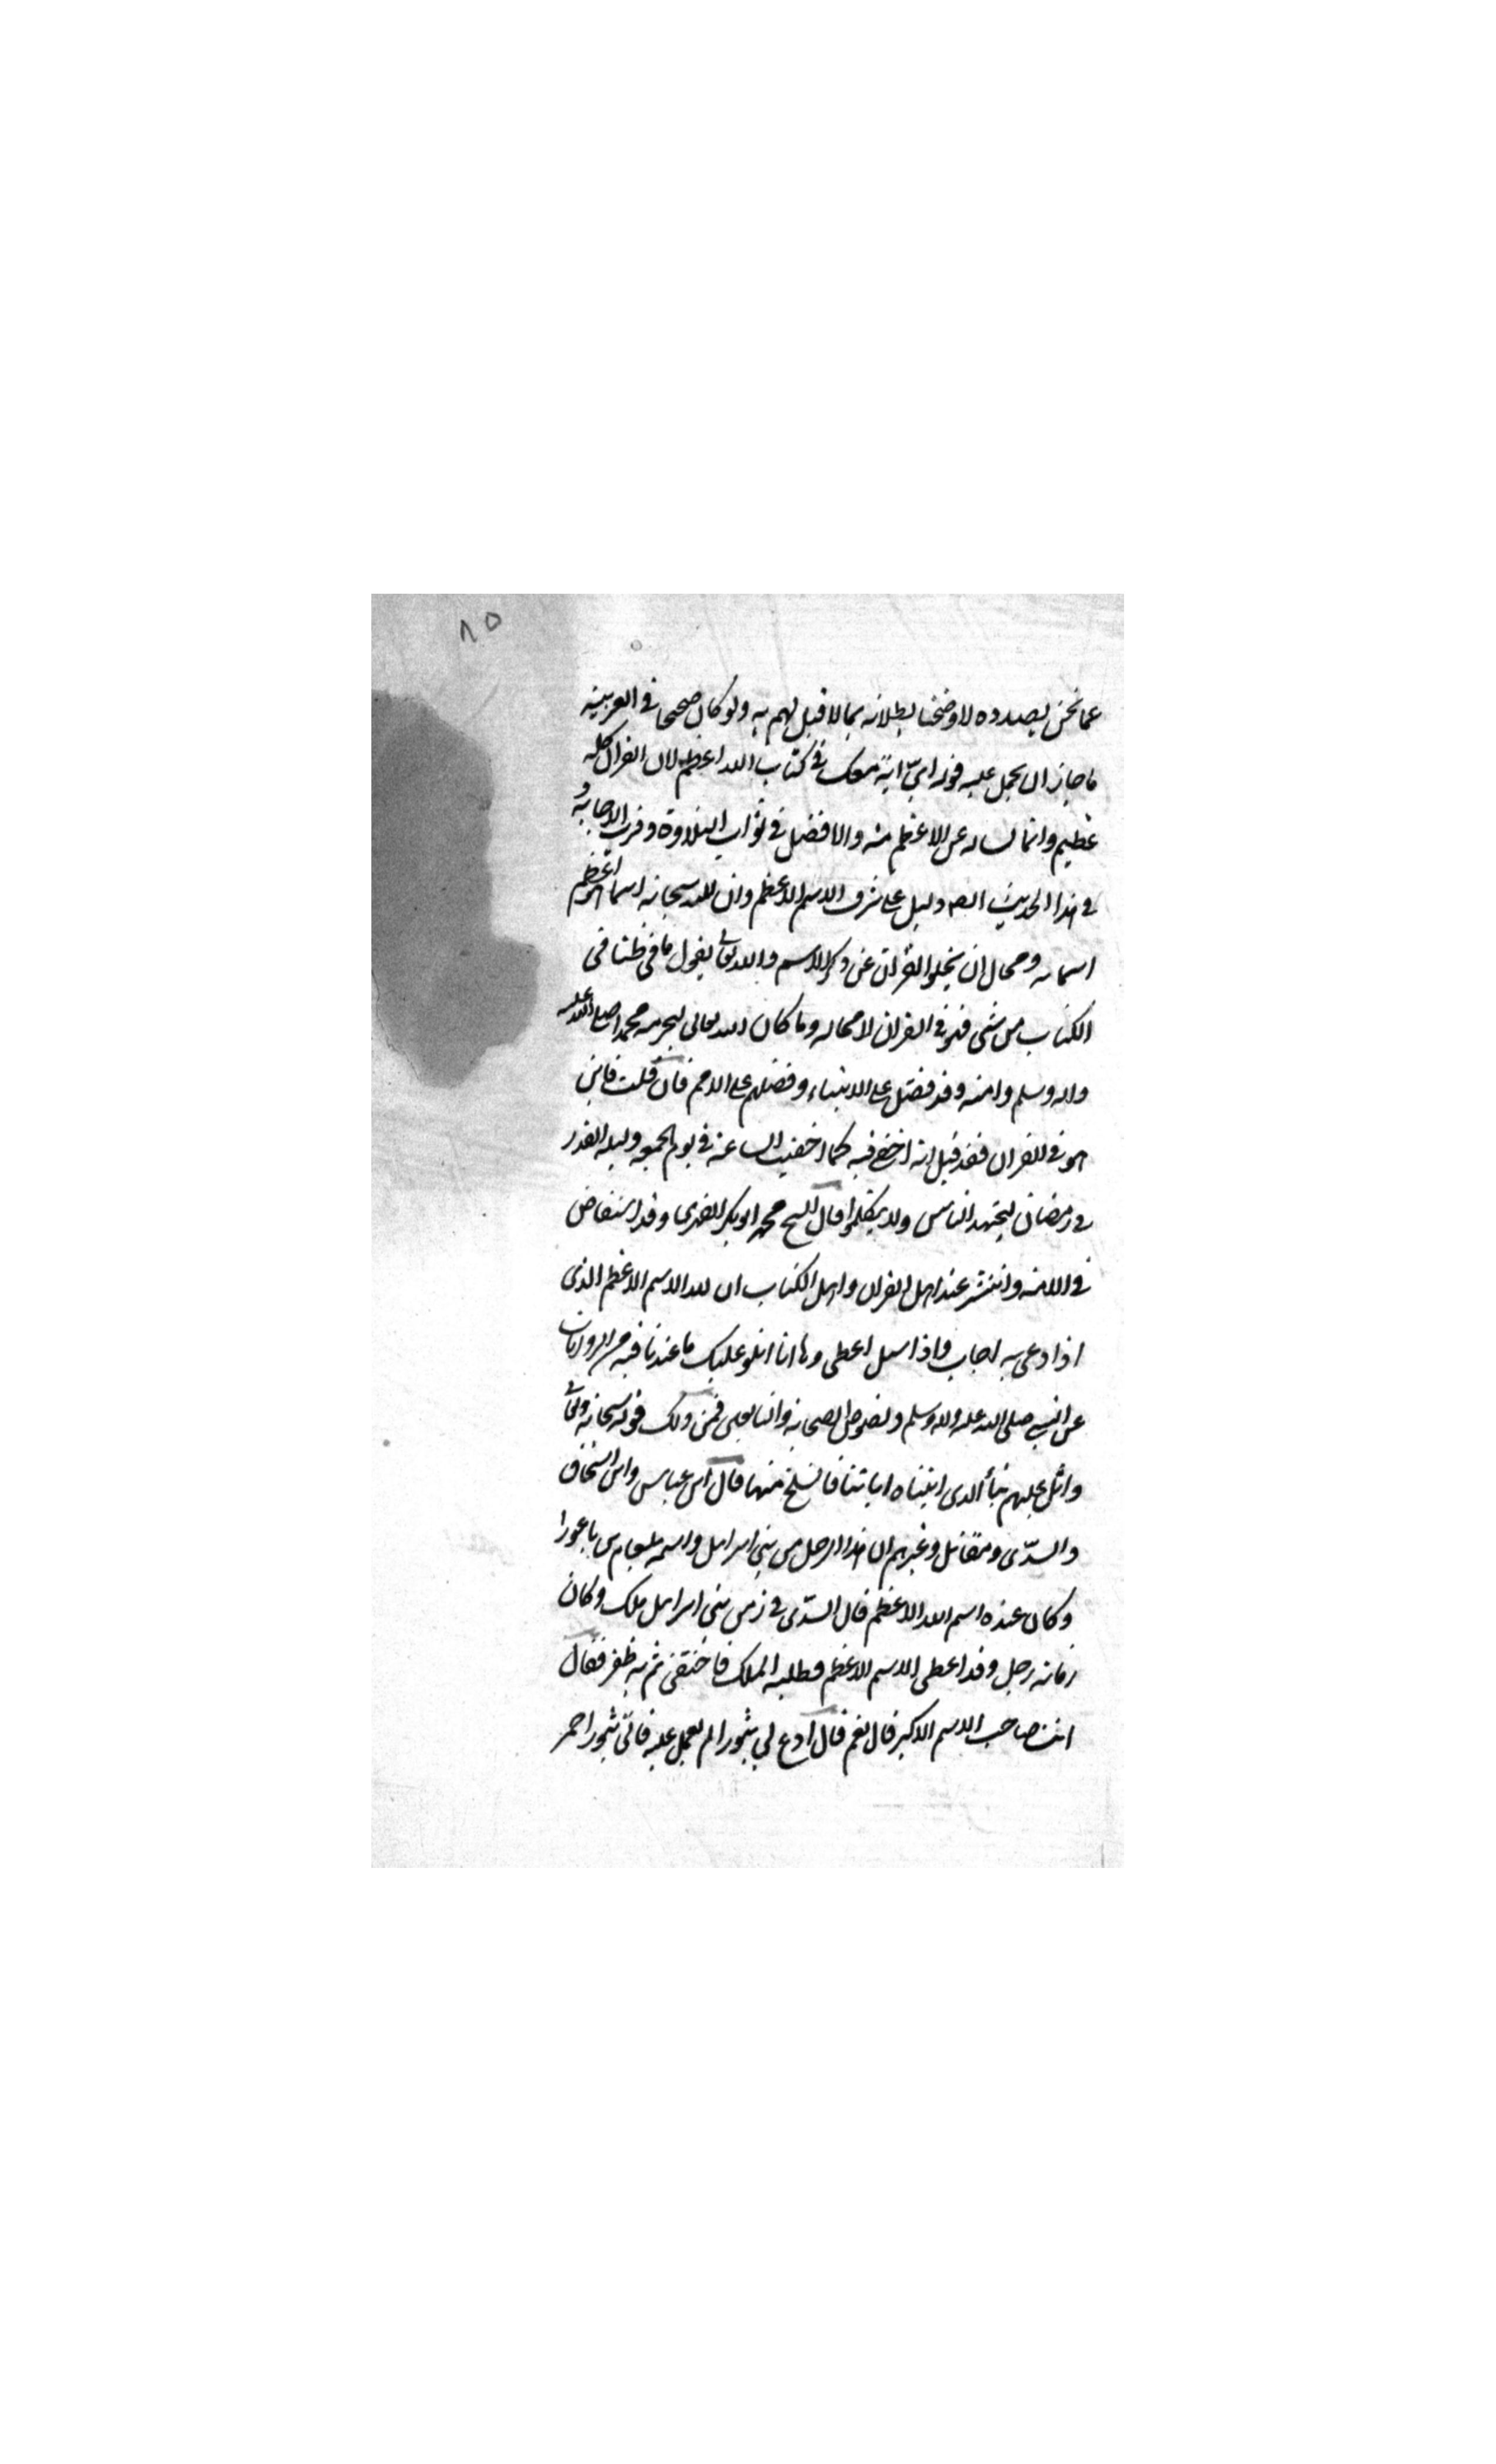 ٨٥
عما نحن بصدده لاوضحنا بطلانه بما لا قبل لهم به ولو كان صحيحا في العربية
ما جاز ان يحمل عليه قوله اىّ اية معك في كتاب الله اعظم لان القران كله
عظيم وانما ساله عن الاعظم منه والافضل في ثواب التلاوة وقرب الاجابة و
في هذا الحديث ايضا دليل على شرف الاسم الاعظم وان لله سبحانه اسما هو اعظم
اسمائه ومحال ان يخلو القران عن ذكر الاسم والله تعالى يقول ما فرطنا في
الكتاب من شى فهو في القران لا محاله وما كان الله تعالى ليحرمه محمدا صلى الله عليه
واله وسلم وامته وقد فضل على الانبياء وفضلهم على الامم فان قلت فاين
هو في القران فقد قيل انه اخفى فيه كما اخفيت الساعة في يوم الجمعه وليلة القدر
في رمضان ليجتهد الناس ولا يتكلموا قال الشيخ محمد ابو بكر الفهرى وقد استفاض
في الامة وانتشر عند اهل القران واهل الكتاب ان لله الاسم الاعظم الذى
اذا دعى به اجاب واذا سيل اعطى وها انا اتلو عليك ما عندنا فيه من الروايات
عن النبي صلى الله عليه واله وسلم ونصوص الصحابة والتابعين فمن ذلك قوله سبحانه وتعالى
واتل عليهم نبأ الذى اتيناه اياتنا فانسلخ منها قال ابن عباس وابن اسحاق
والسدّى ومقاتل وغيرهم ان هذا الرجل من بني اسرايل واسمه بلعام بن باعورا
وكان عنده اسم الله الاعظم قال السدّى في زمن بني اسرايل ملك وكان
زمانه رجل وقد اعطى الاسم الاعظم فطلبه الملك فاختفى ثم به ظفر فقال
انت صاحب الاسم الاكبر قال نعم قال ادع لي بثور الم يعمل عليه فاتى بثور احمر